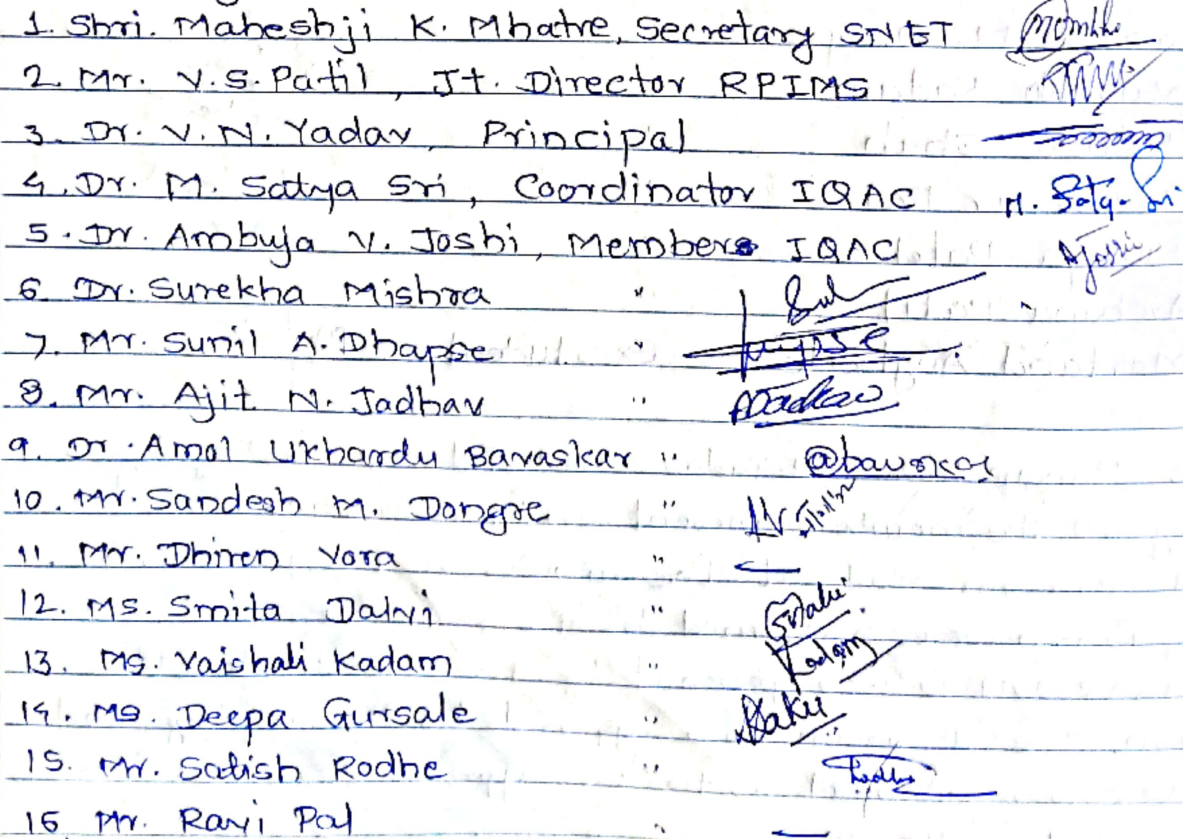 1. Shri. Maheshji K. Mhatre, Secretary SNET
2. Mr. V.S. Patil, Jt. Director RPIMS
3. Dr. V.N. Yadav, Principal
4. Dr. M. Satya Sri, Coordinator IQAC M. Satya Sri
5. Dr. Ambuja V. Joshi, Members IQAC AJoshi
6. Dr. Surekha Mishra "
7. Mr. Sunil A. Dhapse "
8. Mr. Ajit N. Jadhav " AJadhav
9. Dr. Amol Ukhardu Bavaskar " @bavaskar
10. Mr. Sandesh M. Dongre "
11. Mr. Dhiren Vora "
12. Ms. Smita Dalvi " Dalvi
13. Ms. Vaishali Kadam " Kadam
14. Ms. Deepa Gursale "
15. Mr. Satish Rodhe "
16 Mr. Ravi Pal "